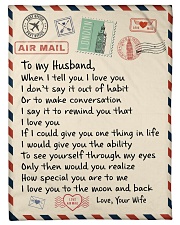 AIR MAIL
To my Husband,
When I tell you I love you
I don't say it out of habit
Or to make conversation
I say it to remind you that
I love you
If I could give you one thing in life
I would give you the ability
To see yourself through my eyes
Only then would you realize
How special you are to me
I love you to the moon and back
Love, Your Wife